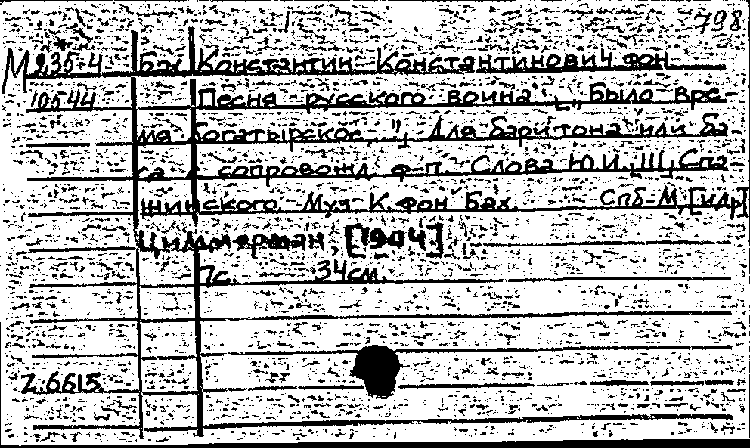 798
М 235-4 Бах Константин Константинович фон.
10544 Песня русского воина. „Было вре-
мя богатырское..." Для баритона или ба-
са с сопровожд. ф-п. Слова Ю.И. Спа-
жинского. Муз К. фон Бах. Спб-М, [и др]
Циммерман, [1904]
7с. 34см.
Z.6615